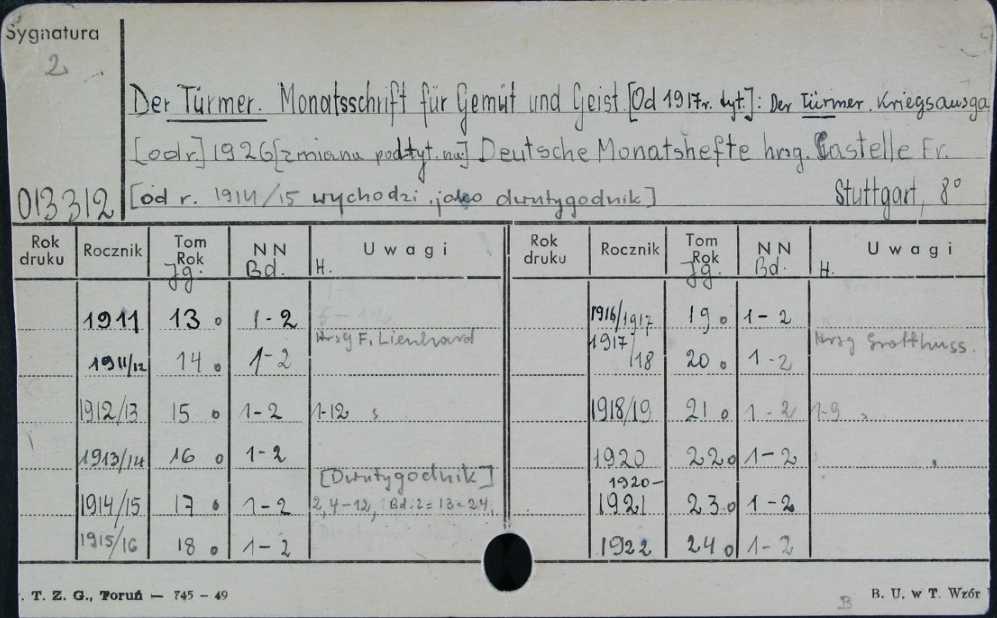 Sygnatura
2
Der Türmer. Monatsschrift für Gemüt und Geist [Od 1917r. tyt.]: Der Türmer. Kriegsausga
[od r.] 1926 [zmiana podtyt. na] Deutsche Monatshefte hrsg. Castelle Fr.
013312 [od r. 1914/15 wychodzi jako dwutygodnik] Stuttgart, 8°
Rok druku Rocznik Tom Rok Jg. NN Bd. Uwagi H. Rok druku Rocznik Tom Rok Jg. NN Bd. Uwagi H.
1911 13 o 1-2 1916/1917 19 o 1-2
Hrsg F. Lienhard Hrsg Grotthuss.
1911/12 14 o 1-2 1917/18 20 o 1-2
1912/13 15 o 1-2 1-12 1918/19 21 o 1-2 1-9
1913/14 16 o 1-2 1920 22 o 1-2
[Dwutygodnik]
1914/15 17 o 1-2 2, 4-12, Bd. 2 = 13-24. 1920-1921 23 o 1-2
1915/16 18 o 1-2 1922 24 o 1-2
. T. Z. G., Toruń — 745 - 49 B B. U. w T. Wzór